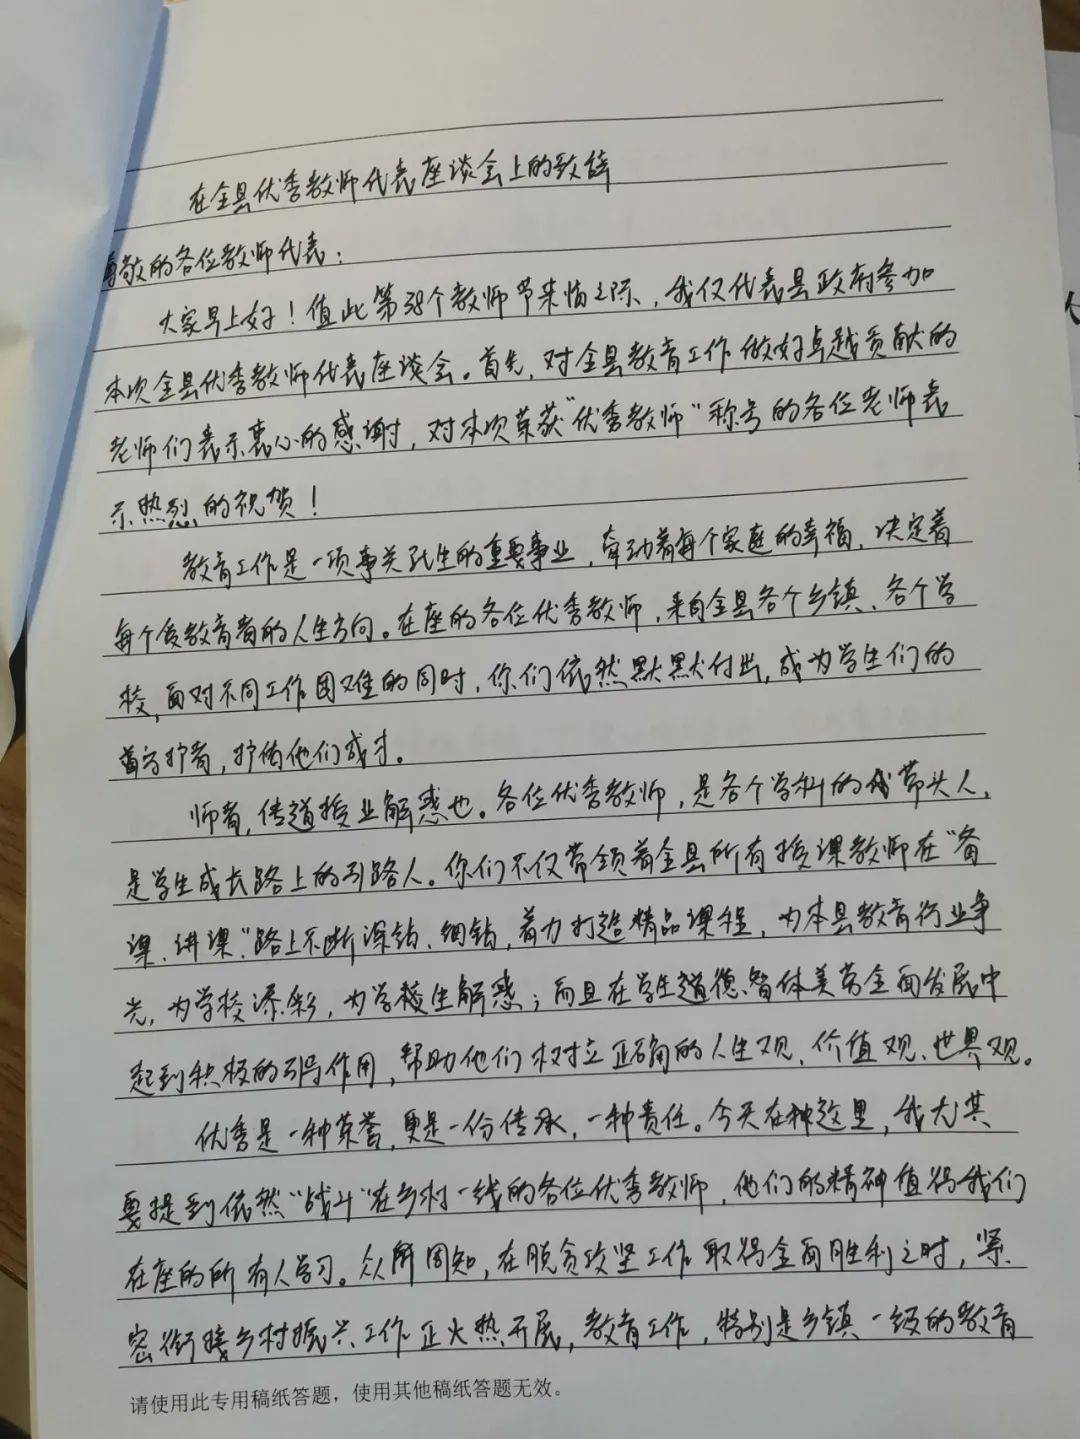 在全县优秀教师代表座谈会上的致辞
尊敬的各位教师代表：
大家早上好！值此第38个教师节来临之际，我仅代表县政府参加
本次全县优秀教师代表座谈会。首先，对全县教育工作做好卓越贡献的
老师们表示衷心的感谢，对本项荣获“优秀教师”称号的各位老师表
示热烈的祝贺！
教育工作是一项事关民生的重要事业，牵动着每个家庭的幸福，决定着
每个受教育者的人生方向。在座的各位优秀教师，来自全县各个乡镇、各个学
校，面对不同工作困难的同时，你们依然默默付出，成为学生们的
守护者，护佑他们成才。
师者，传道授业解惑也。各位优秀教师，是各个学科的带头人，
是学生成长路上的引路人。你们不仅带领着全县所有授课教师在“备
课、讲课”路上不断深钻、细钻，着力打造精品课程，为本县教育行业争
光，为学校添彩，为学生解惑；而且在学生道德智体美劳全面发展中
起到积极的引导作用，帮助他们树立正确的人生观、价值观、世界观。
优秀是一种荣誉，更是一份传承，一种责任。今天在这里，我尤其
要提到依然“战斗”在乡村一线的各位优秀教师，他们的精神值得我们
在座的所有人学习。众所周知，在脱贫攻坚工作取得全面胜利之时，紧
密衔接乡村振兴工作正火热开展，教育工作，特别是乡镇一级的教育
请使用此专用稿纸答题，使用其他稿纸答题无效。